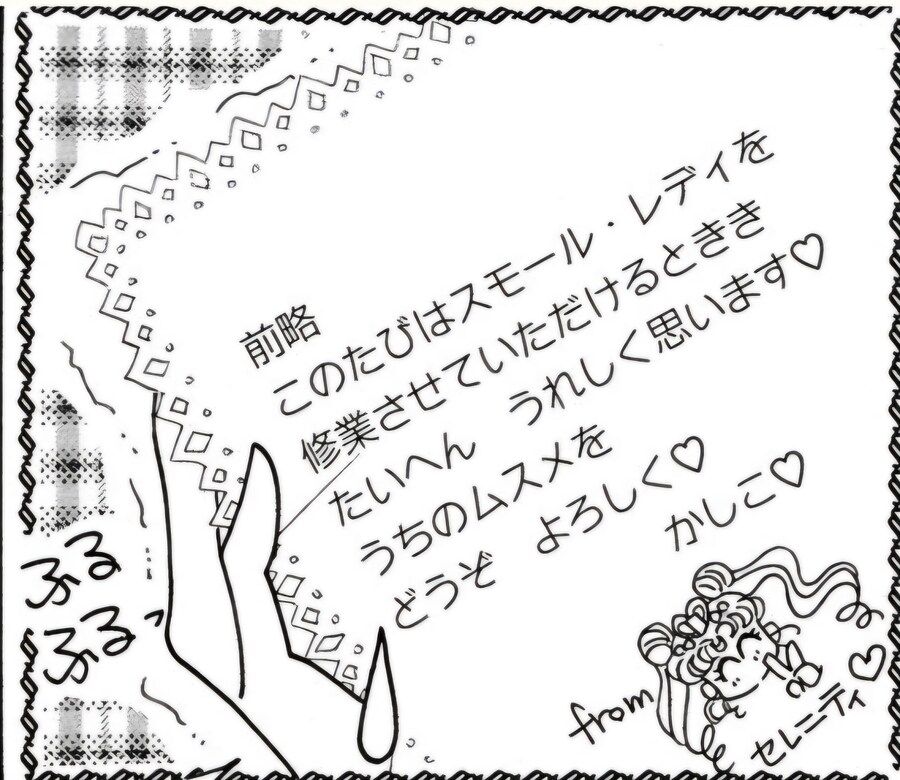 前略
このたびはスモール・レディを
修業させていただけるときき
たいへん うれしく思います♡
うちのムスメを
どうぞ よろしく♡
かしこ♡
from
セレニティ♡
ふる
ふるっ